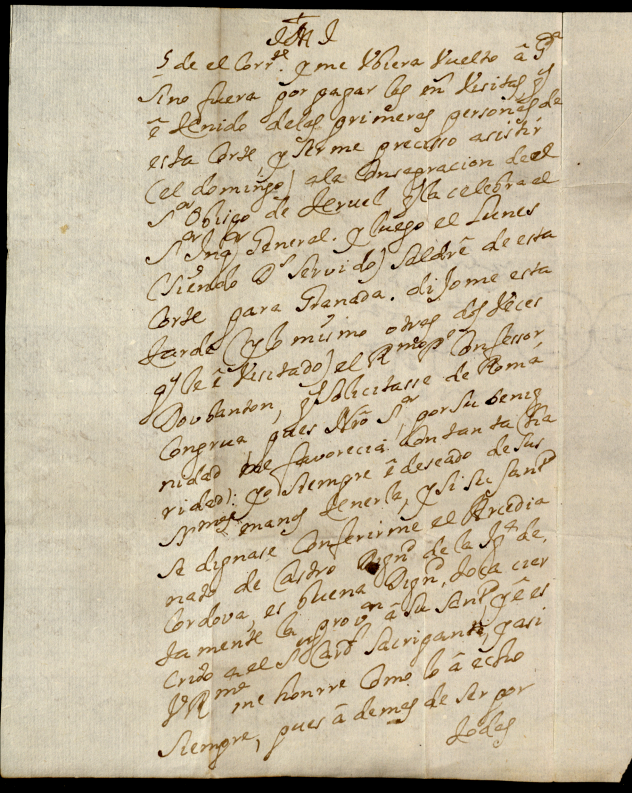 JHJ
5 de el Corr.te q me Vbiera Vuelto â G.da
sino fuera por pagar las en Visitas q
ê tenido delas primeras personas de
esta Corte, y serme precisso asistir
(el domingo) ala Consagracion deel
S.or Obispo de Teruel, q la celebra el
S.or Inq.or General. y luego el Lunes
(siendo D.s servido) saldrê de esta
Corte para Granada. dijome esta
tarde (y lo mismo otras dos veces
q le ê Visitado) el R.mo P.e Confessor
Doubanton, q solicitasse de Roma
Congrua, pues Nrõ S.or por su benig
nidad me favorecia con tanta Cha
ridad: yo siempre ê deseado de sus
S.mas manos tenerla, y si su Sant.d
se dignase Conferirme el Arcedia
nato de Castro Dign.d de la Ig.a de
Cordova, es buena Dign.d, toca cier
tamente la prov.on â su Sant.d, y ê es
crito a el S.r Card.l Sacripante, q asi
V R.ma me honrre Como lo â echo
siempre, pues â demas de ser por
todas